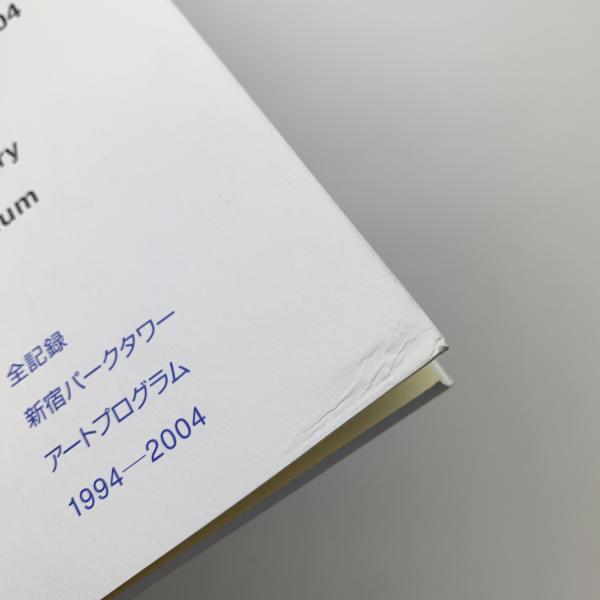 04
ry
um
全記録
新宿パークタワー
アートプログラム
1994—2004